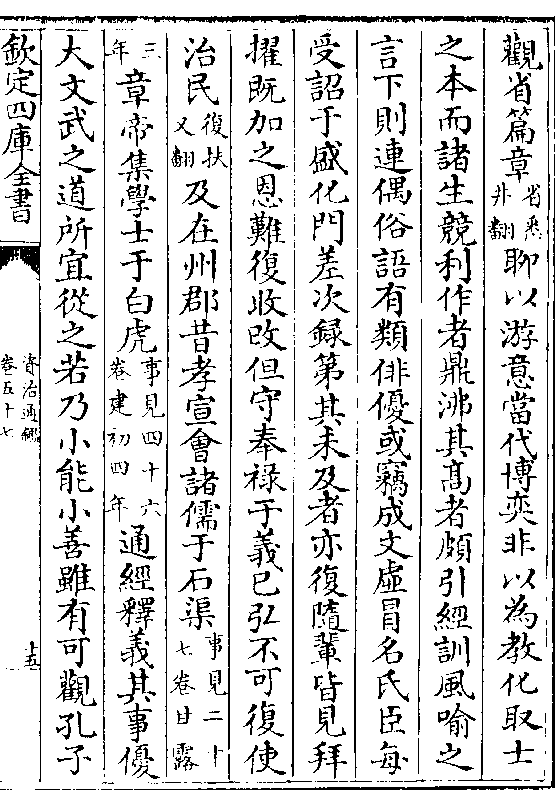 觀省篇章省悉井翻聊以游意當代博奕非以為教化取士
之本而諸生競利作者鼎沸其髙者頗引經訓風喻之
言下則連偶俗語有類俳優或竊成文虛冒名氏臣每
受詔于盛化門差次録第其未及者亦復隨輩皆見拜
擢既加之恩難復收改但守奉祿于義已弘不可復使
治民復扶又翻及在州郡昔孝宣會諸儒于石渠事見二十七卷甘露
三年章帝集學士于白虎事見四十六卷建初四年通經釋義其事優
大文武之道所宜從之若乃小能小善雖有可觀孔子
欽定四庫全書
資治通鑑
卷五十七
十五